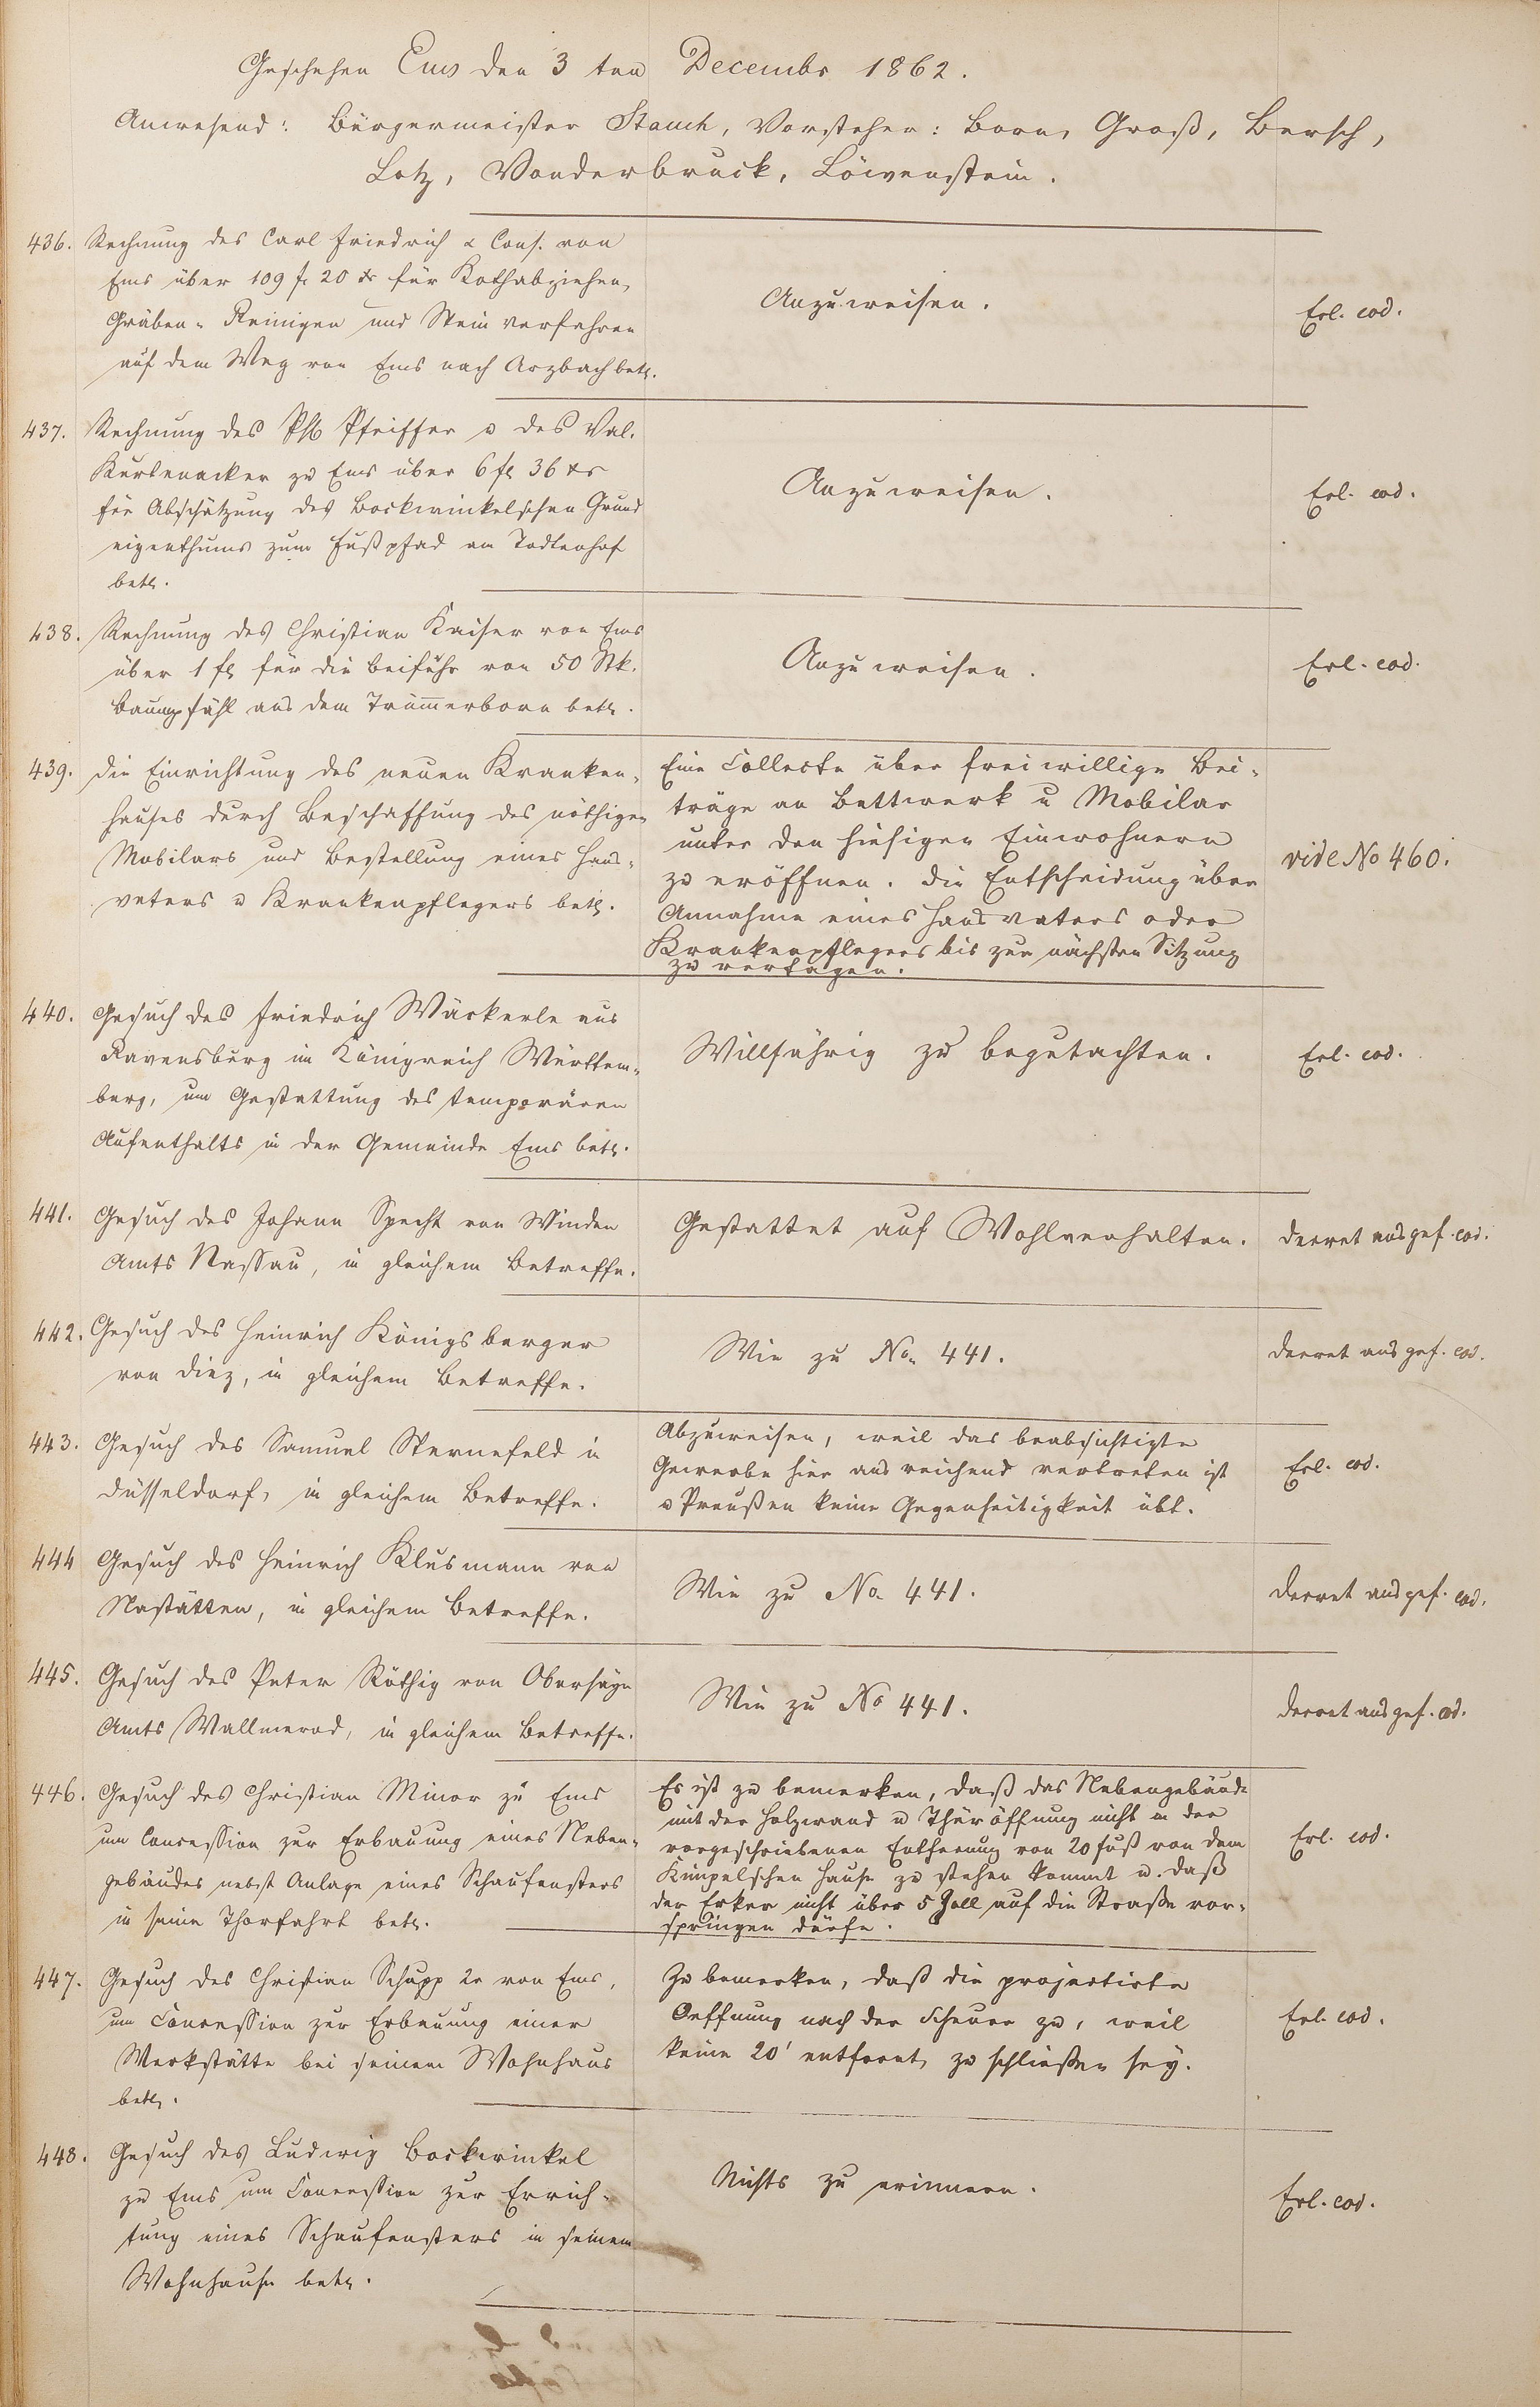 Geschehen Ems den 3 ten Decembr 1862.
Anwesend: Bürgermeister Stauch, Vorsteher: Born, Groß, Bersch,
Lotz, Vonderbruck, Löwenstein.
436. Rechnung des Carl Friedrich & Cons. von
Ems über 109 f. 20 xr für Kothabziehen,
Gräben- Reinigen und Stein verfahren
auf dem Weg von Ems nach Arzbach betr.
Anzuweisen.
Erl. eod.
437. Rechnung des Ph. Pfeiffer u des Val.
Kurbenacker zu Ems über 6 fl 36 xr
für Abschätzung des Bockwinkelschen Grund
eigenthums zum Fußpfad am Todtenhof
betr.
Anzuweisen.
Erl. eod.
438. Rechnung des Christian Kaiser von Ems
über 1 fl für die Beifuhr von 50 Stk.
Baumpfähl aus dem Trümmerborn betr.
Anzuweisen.
Erl. eod.
439. Die Einrichtung des neuen Kranken-
hauses durch Beschaffung des nöthigen
Mobilars und Bestellung eines Haus-
vaters u Krankenpflegers betr.
Eine Collecte über freiwillige Bei-
träge an Bettwerk u Mobilar
unter den hiesigen Einwohnern
zu eröffnen. Die Entscheidung über
Annahme eines Hausvaters oder
Krankenpflegers bis zur nächsten Sitzung
zu vertagen.
vide No 460.
440. Gesuch des Friedrich Wäckerle aus
Ravensburg im Königreich Württem-
berg, um Gestattung des temporären
Aufenthalts in der Gemeinde Ems betr.
Willfährig zu begutachten.
Erl. eod.
441. Gesuch des Johann Specht von Winden
Amts Nassau, in gleichem Betreffe.
Gestattet auf Wohlverhalten.
Decret ausgef. eod.
442. Gesuch des Heinrich Königsberger
von Diez, in gleichem Betreffe.
Wie zu No. 441.
Decret ausgef. eod.
443. Gesuch des Samuel Sternefeld in
Düsseldorf, in gleichem Betreffe.
Abzuweisen, weil das beabsichtigte
Gewerbe hier ausreichend vertreten ist
u Preußen keine Gegenseitigkeit übt.
Erl. eod.
444 Gesuch des Heinrich Klusmann von
Nastätten, in gleichem Betreffe.
Wie zu No. 441.
Decret ausgef. eod.
445. Gesuch des Peter Röthig von Obersayn
Amts Wallmerod, in gleichem Betreffe.
Wie zu No 441.
Decret ausgef. eod.
446. Gesuch des Christian Minor zu Ems
um Concession zur Erbauung eines Neben-
gebäudes nebst Anlage eines Schaufensters
in seine Thorfahrt betr.
Es ist zu bemerken, daß das Nebengebäude
mit der Holzwand u Thüröffnung nicht in der
vorgeschriebenen Entfernung von 20 Fuß von dem
Kimpelschen Hause zu stehen kommt u. daß
der Erker nicht über 5 Zoll auf die Straße vor-
springen dürfe.
Erl. eod.
447. Gesuch des Christian Schupp 2r von Ems,
um Concession zur Erbauung einer
Werkstätte bei seinem Wohnhaus
betr.
Zu bemerken, daß die projectirte
Oeffnung nach der Scheuer zu, weil
keine 20' entfernt, zu schließen sey.
Erl. eod.
448. Gesuch des Ludwig Bockwinkel
zu Ems um Concession zur Errich-
tung eines Schaufensters in seinem
Wohnhause betr.
Nichts zu erinnern.
Erl. eod.